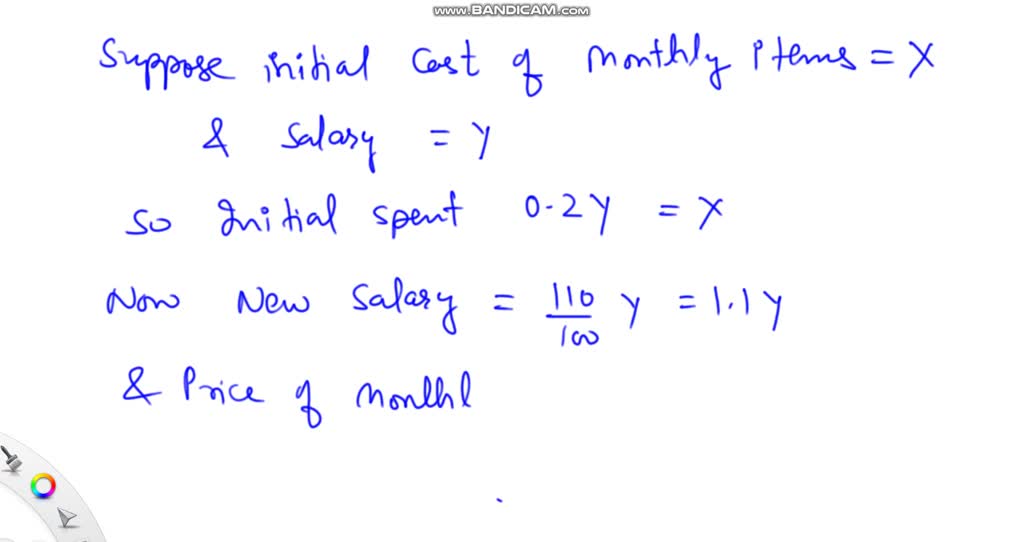 www.BANDICAM.com
Suppose initial cost of monthly items = X
& salary = Y
So Initial spent 0.2Y = X
Now New Salary = 110/100 Y = 1.1Y
& Price of monthl